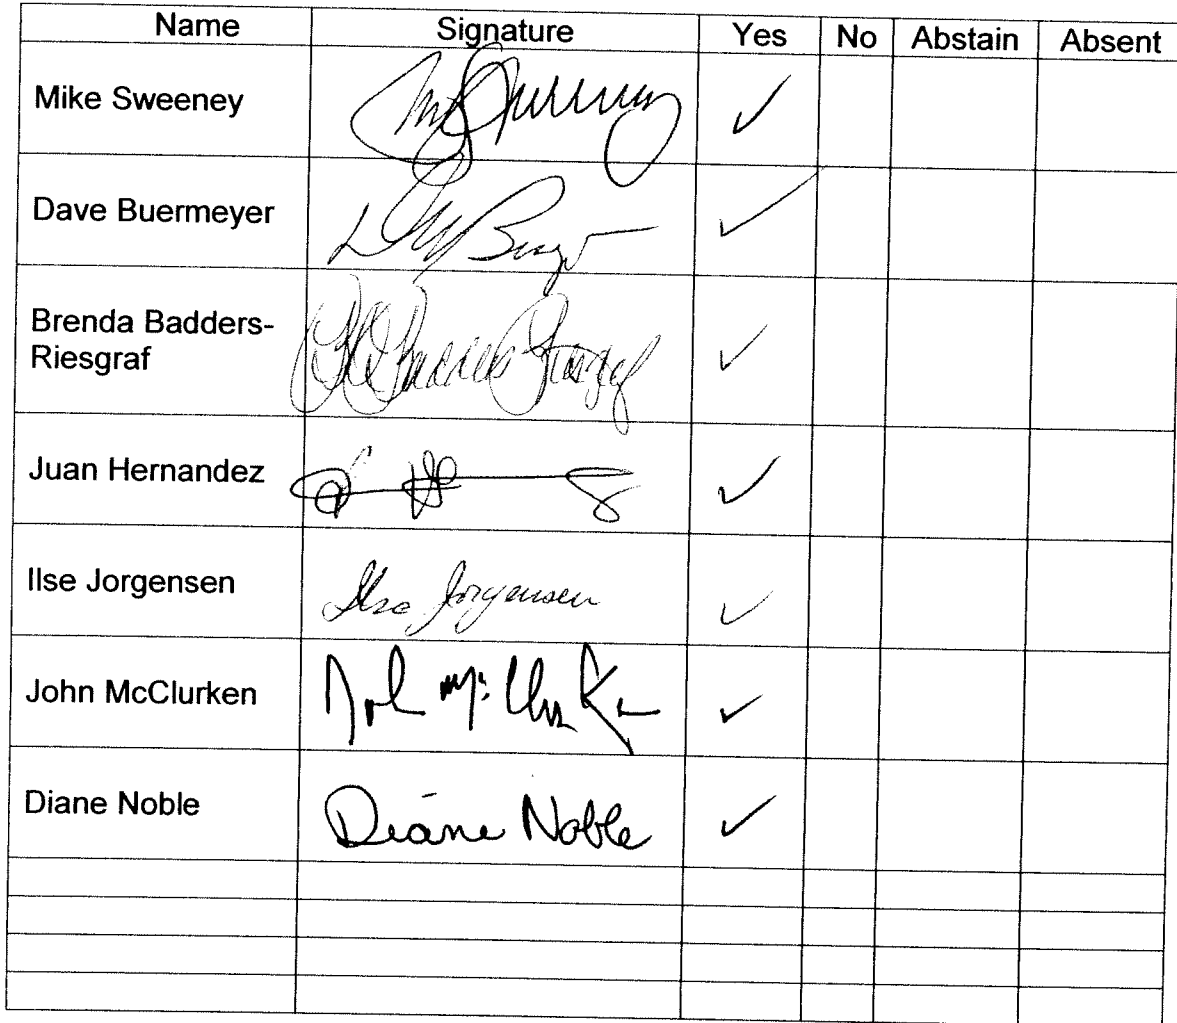 Name Signature Yes No Abstain Absent
Mike Sweeney ✓
Dave Buermeyer ✓
Brenda Badders-
Riesgraf ✓
Juan Hernandez ✓
Ilse Jorgensen Ilse Jorgensen ✓
John McClurken John McClurken ✓
Diane Noble Diane Noble ✓